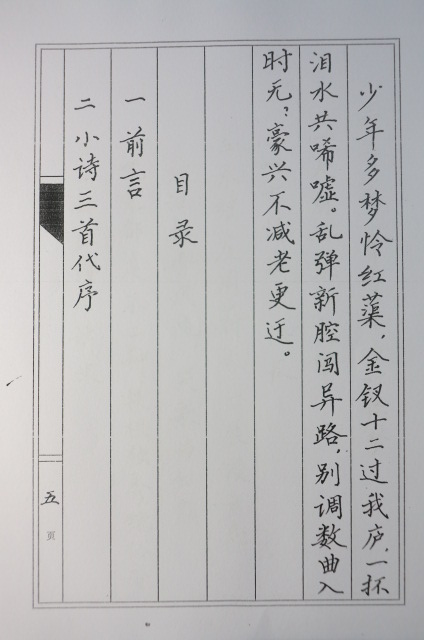 少年多梦怜红蕖，金钗十二过我庐，一抔
泪水共唏嘘。乱弹新腔闯异路，别调数曲入
时无？豪兴不减老更迂。
目录
一 前言
二 小诗三首代序
五
页